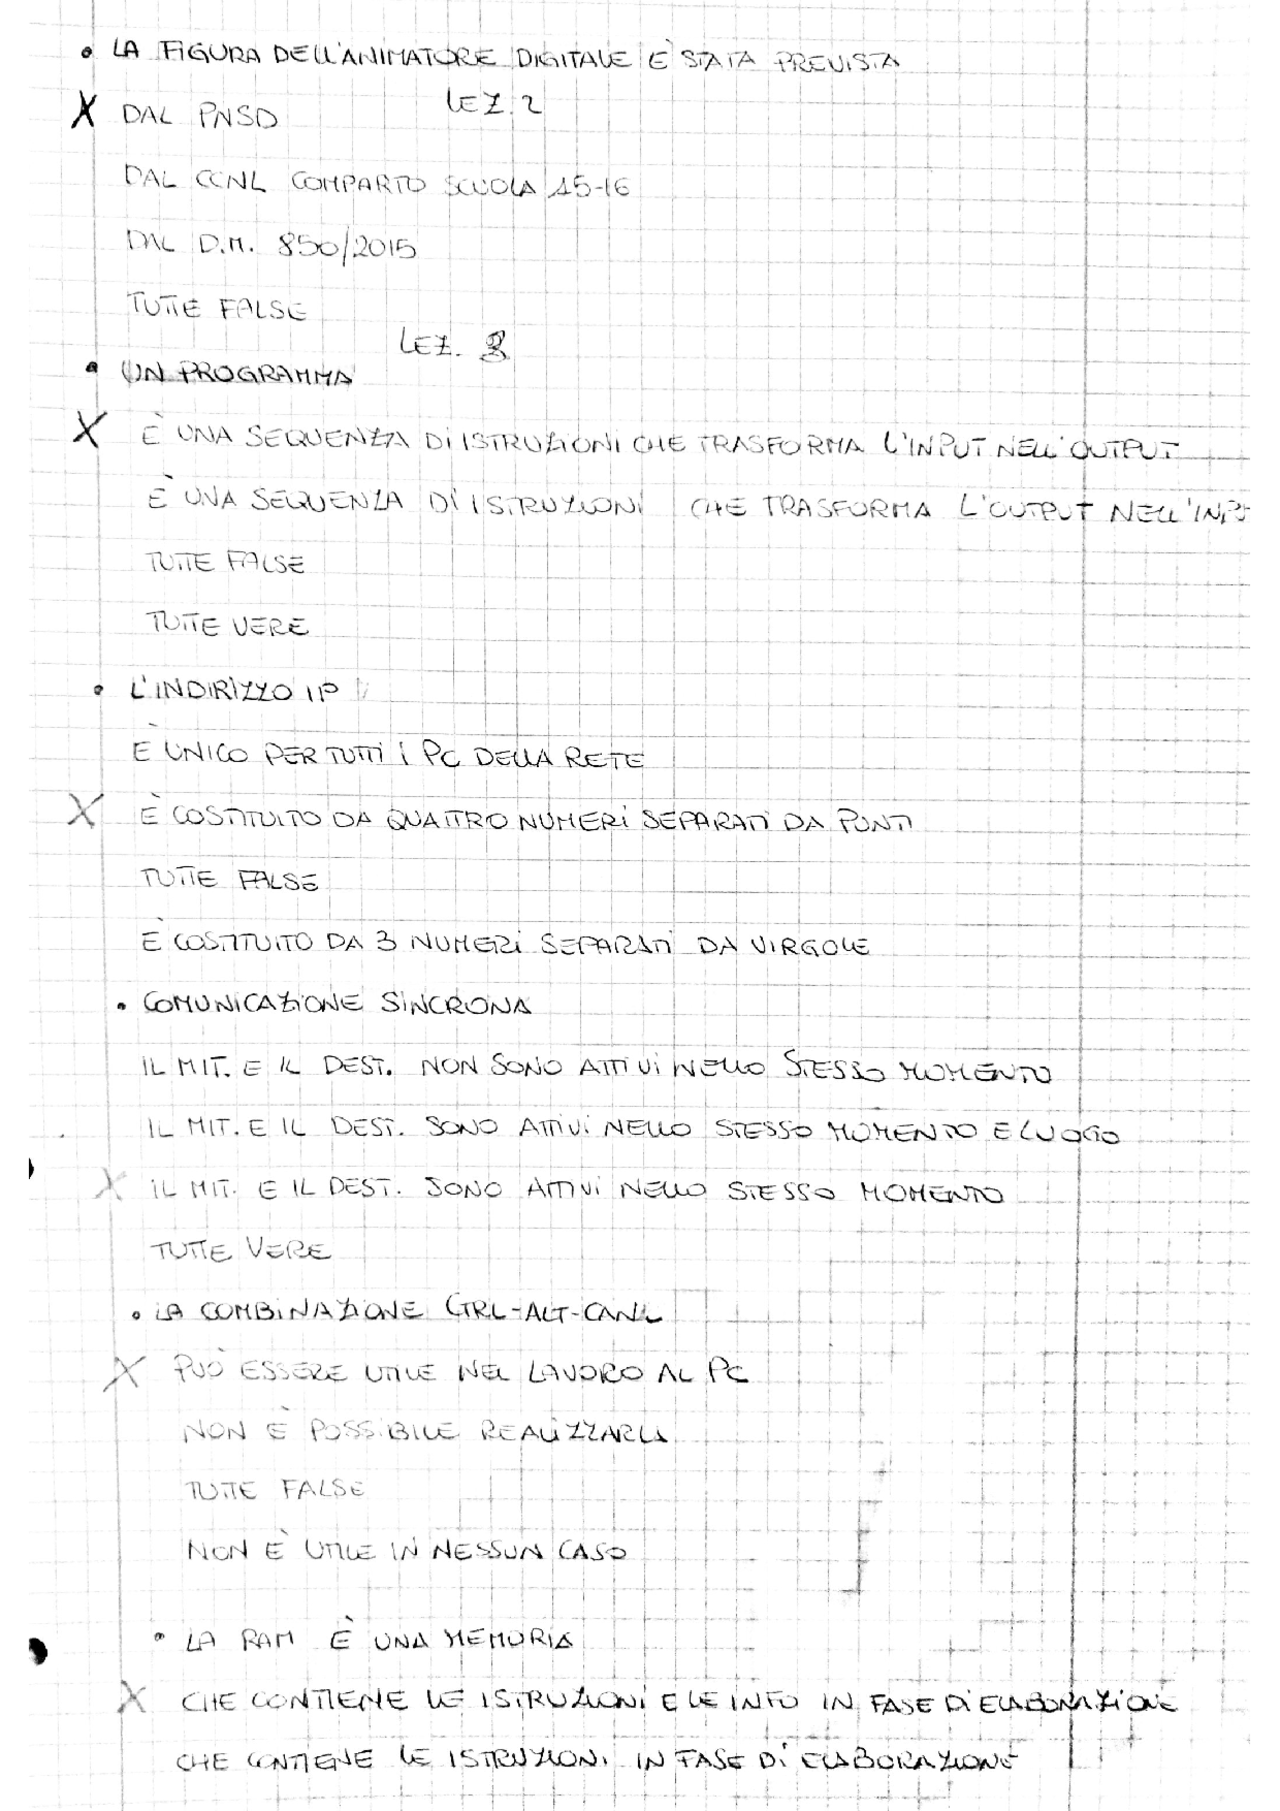 • LA FIGURA DELL'ANIMATORE DIGITALE È STATA PREVISTA
LEZ. 2
X DAL PNSD
DAL CCNL COMPARTO SCUOLA 15-16
DAL D.M. 850/2015
TUTTE FALSE
LEZ. 3
• UN PROGRAMMA
X È UNA SEQUENZA DI ISTRUZIONI CHE TRASFORMA L'INPUT NELL'OUTPUT
È UNA SEQUENZA DI ISTRUZIONI CHE TRASFORMA L'OUTPUT NELL'INP
TUTTE FALSE
TUTTE VERE
• L'INDIRIZZO IP
È UNICO PER TUTTI I PC DELLA RETE
X È COSTITUITO DA QUATTRO NUMERI SEPARATI DA PUNTI
TUTTE FALSE
È COSTITUITO DA 3 NUMERI SEPARATI DA VIRGOLE
• COMUNICAZIONE SINCRONA
IL MIT. E IL DEST. NON SONO ATTIVI NELLO STESSO MOMENTO
IL MIT. E IL DEST. SONO ATTIVI NELLO STESSO MOMENTO E LUOGO
X IL MIT. E IL DEST. SONO ATTIVI NELLO STESSO MOMENTO
TUTTE VERE
• LA COMBINAZIONE CTRL-ALT-CANC
X PUÒ ESSERE UTILE NEL LAVORO AL PC
NON È POSSIBILE REALIZZARLA
TUTTE FALSE
NON È UTILE IN NESSUN CASO
• LA RAM È UNA MEMORIA
X CHE CONTIENE LE ISTRUZIONI E LE INFO IN FASE DI ELABORAZIONE
CHE CONTIENE LE ISTRUZIONI IN FASE DI ELABORAZIONE